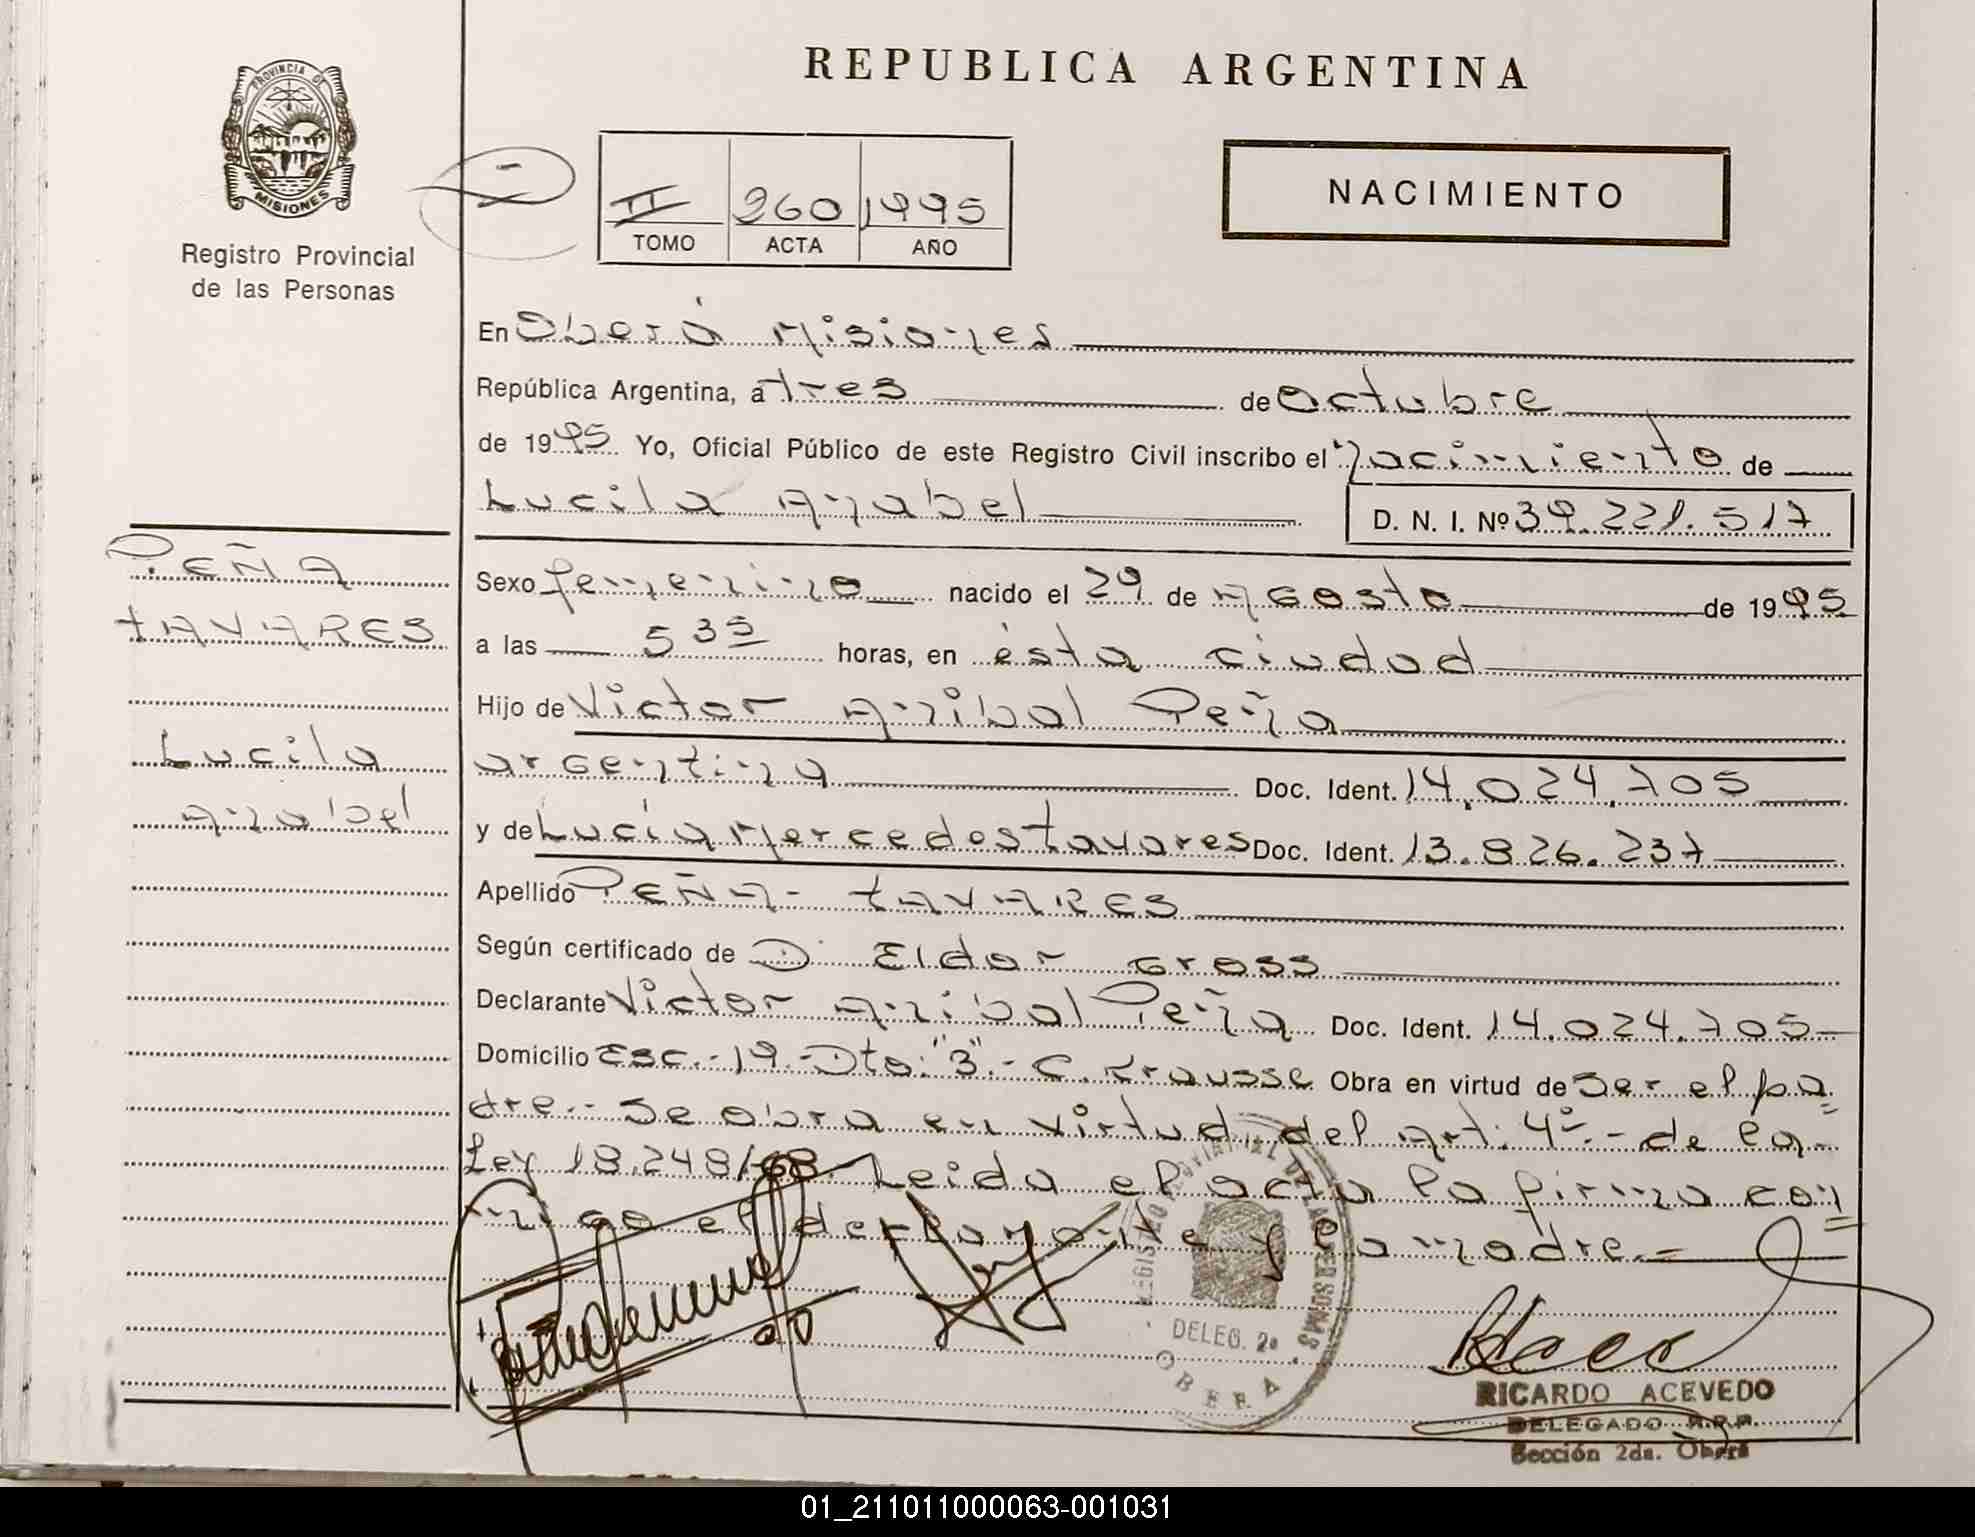 REPUBLICA ARGENTINA
PROVINCIA DE
MISIONES
Registro Provincial
de las Personas
II 260 1995
TOMO ACTA AÑO
NACIMIENTO
En Oberá Misiones
República Argentina, a tres de Octubre
de 1995. Yo, Oficial Público de este Registro Civil inscribo el Nacimiento de
Lucila Anabel D. N. I. Nº 39.221.517
PEÑA
TAVARES
Lucila
Anabel
Sexo femenino nacido el 29 de Agosto de 1995
a las 5 35 horas, en ésta ciudad
Hijo de Victor Anibal Peña
argentina Doc. Ident. 14.024.705
y de Lucía Mercedes tavares Doc. Ident. 13.826.237
Apellido PEÑA - TAVARES
Según certificado de D. Eldor Gross
Declarante Victor Anibal Peña Doc. Ident. 14.024.705
Domicilio Esc.-19.-Dto: "3".- C. Krausse Obra en virtud de Ser el pa=
dre.- Se obra en virtud del Art: 4º.- de la
Ley 18.248/68. Leida el acta la firma con=
migo el declarante y la madre.=
REGISTRO PROVINCIAL DE LAS PERSONAS
DELEG. 2ª
OBERA
RICARDO ACEVEDO
DELEGADO R.P.P.
Sección 2da. Oberá
01_211011000063-001031